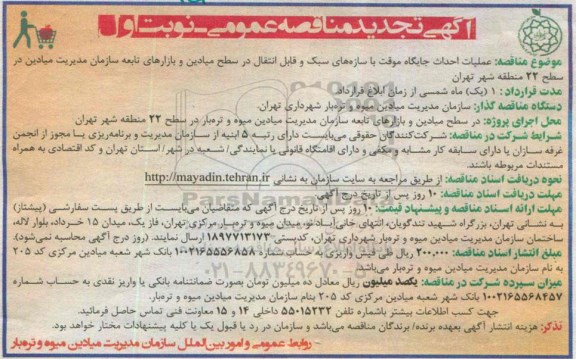 آگهی تجدید مناقصه عمومی - نوبت اول
موضوع مناقصه: عملیات احداث جایگاه موقت با سازه‌های سبک و قابل انتقال در سطح میادین و بازارهای تابعه سازمان مدیریت میادین در
سطح ۲۲ منطقه شهر تهران
مدت قرارداد: ۱ (یک) ماه شمسی از زمان ابلاغ قرارداد.
دستگاه مناقصه گذار: سازمان مدیریت میادین میوه و تره‌بار شهرداری تهران.
محل اجرای پروژه: در سطح میادین و بازارهای تابعه سازمان مدیریت میادین میوه و تره‌بار در سطح ۲۲ منطقه شهر تهران
شرایط شرکت در مناقصه: شرکت‌کنندگان حقوقی می‌بایست دارای رتبه ۵ ابنیه از سازمان مدیریت و برنامه‌ریزی یا مجوز از انجمن
غرفه سازان یا دارای سابقه کار مشابه و مکفی و دارای اقامتگاه قانونی یا نمایندگی/ شعبه در شهر/ استان تهران و کد اقتصادی به همراه
مستندات مربوطه باشند.
نحوه دریافت اسناد مناقصه: از طریق مراجعه به سایت سازمان به نشانی http://mayadin.tehran.ir
مهلت دریافت اسناد مناقصه: ۱۰ روز پس از تاریخ درج آگهی
مهلت ارائه اسناد مناقصه و پیشنهاد قیمت: ۱۰ روز پس از تاریخ درج آگهی که متقاضیان می‌بایست از طریق پست سفارشی (پیشتاز)
به نشانی تهران، بزرگراه شهید تندگویان، انتهای خانی‌آباد نو، میدان میوه و تره‌بار مرکزی تهران، فاز یک، میدان ۱۵ خرداد، بلوار لاله،
ساختمان سازمان مدیریت میادین میوه و تره‌بار شهرداری تهران، کدپستی ۱۸۹۷۷۱۳۱۷۳ ارسال نمایند. (روز درج آگهی محاسبه نمی‌شود).
مبلغ انتشار اسناد مناقصه: ۲۰۰,۰۰۰ ریال طی فیش واریزی به حساب شماره ۱۰۰۲۱۶۵۵۵۶۸۵۸ بانک شهر شعبه میادین مرکزی کد ۲۰۵
به نام سازمان مدیریت میادین میوه و تره‌بار می‌باشد
میزان سپرده شرکت در مناقصه: یکصد میلیون ریال معادل ده میلیون تومان بصورت ضمانتنامه بانکی یا واریز نقدی به حساب شماره
۱۰۰۲۱۶۵۵۶۸۴۵۷ بانک شهر شعبه میادین مرکزی کد ۲۰۵ بنام سازمان مدیریت میادین میوه و تره‌بار.
جهت کسب اطلاعات بیشتر باشماره تلفن ۵۵۰۱۵۲۳۲ داخلی ۱۴ و ۱۵ معاونت فنی تماس حاصل فرمائید.
تذکر: هزینه انتشار آگهی بعهده برنده/ برندگان مناقصه می‌باشد و سازمان در رد یا قبول یک یا کلیه پیشنهادات مختار خواهد بود.
- روابط عمومی و امور بین‌الملل سازمان مدیریت میادین میوه و تره‌بار
۰۲۱-۸۸۳۴۹۶۷۰-۵